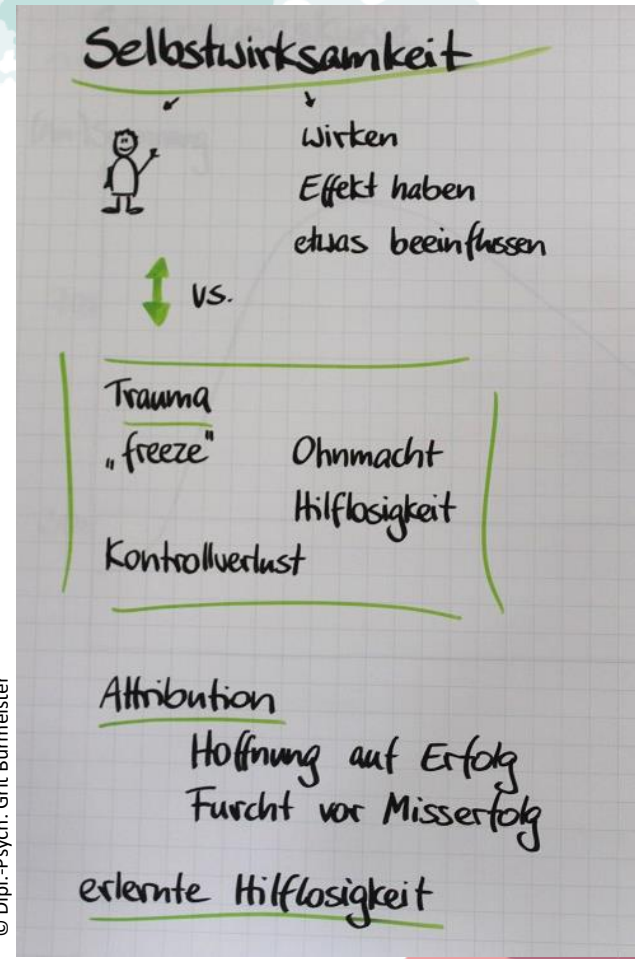 Selbstwirksamkeit
Wirken
Effekt haben
etwas beeinflussen
vs.
Trauma
„freeze" Ohnmacht
Hilflosigkeit
Kontrollverlust
Attribution
Hoffnung auf Erfolg
Furcht vor Misserfolg
erlernte Hilflosigkeit
© Dipl.-Psych. Grit Burmeister